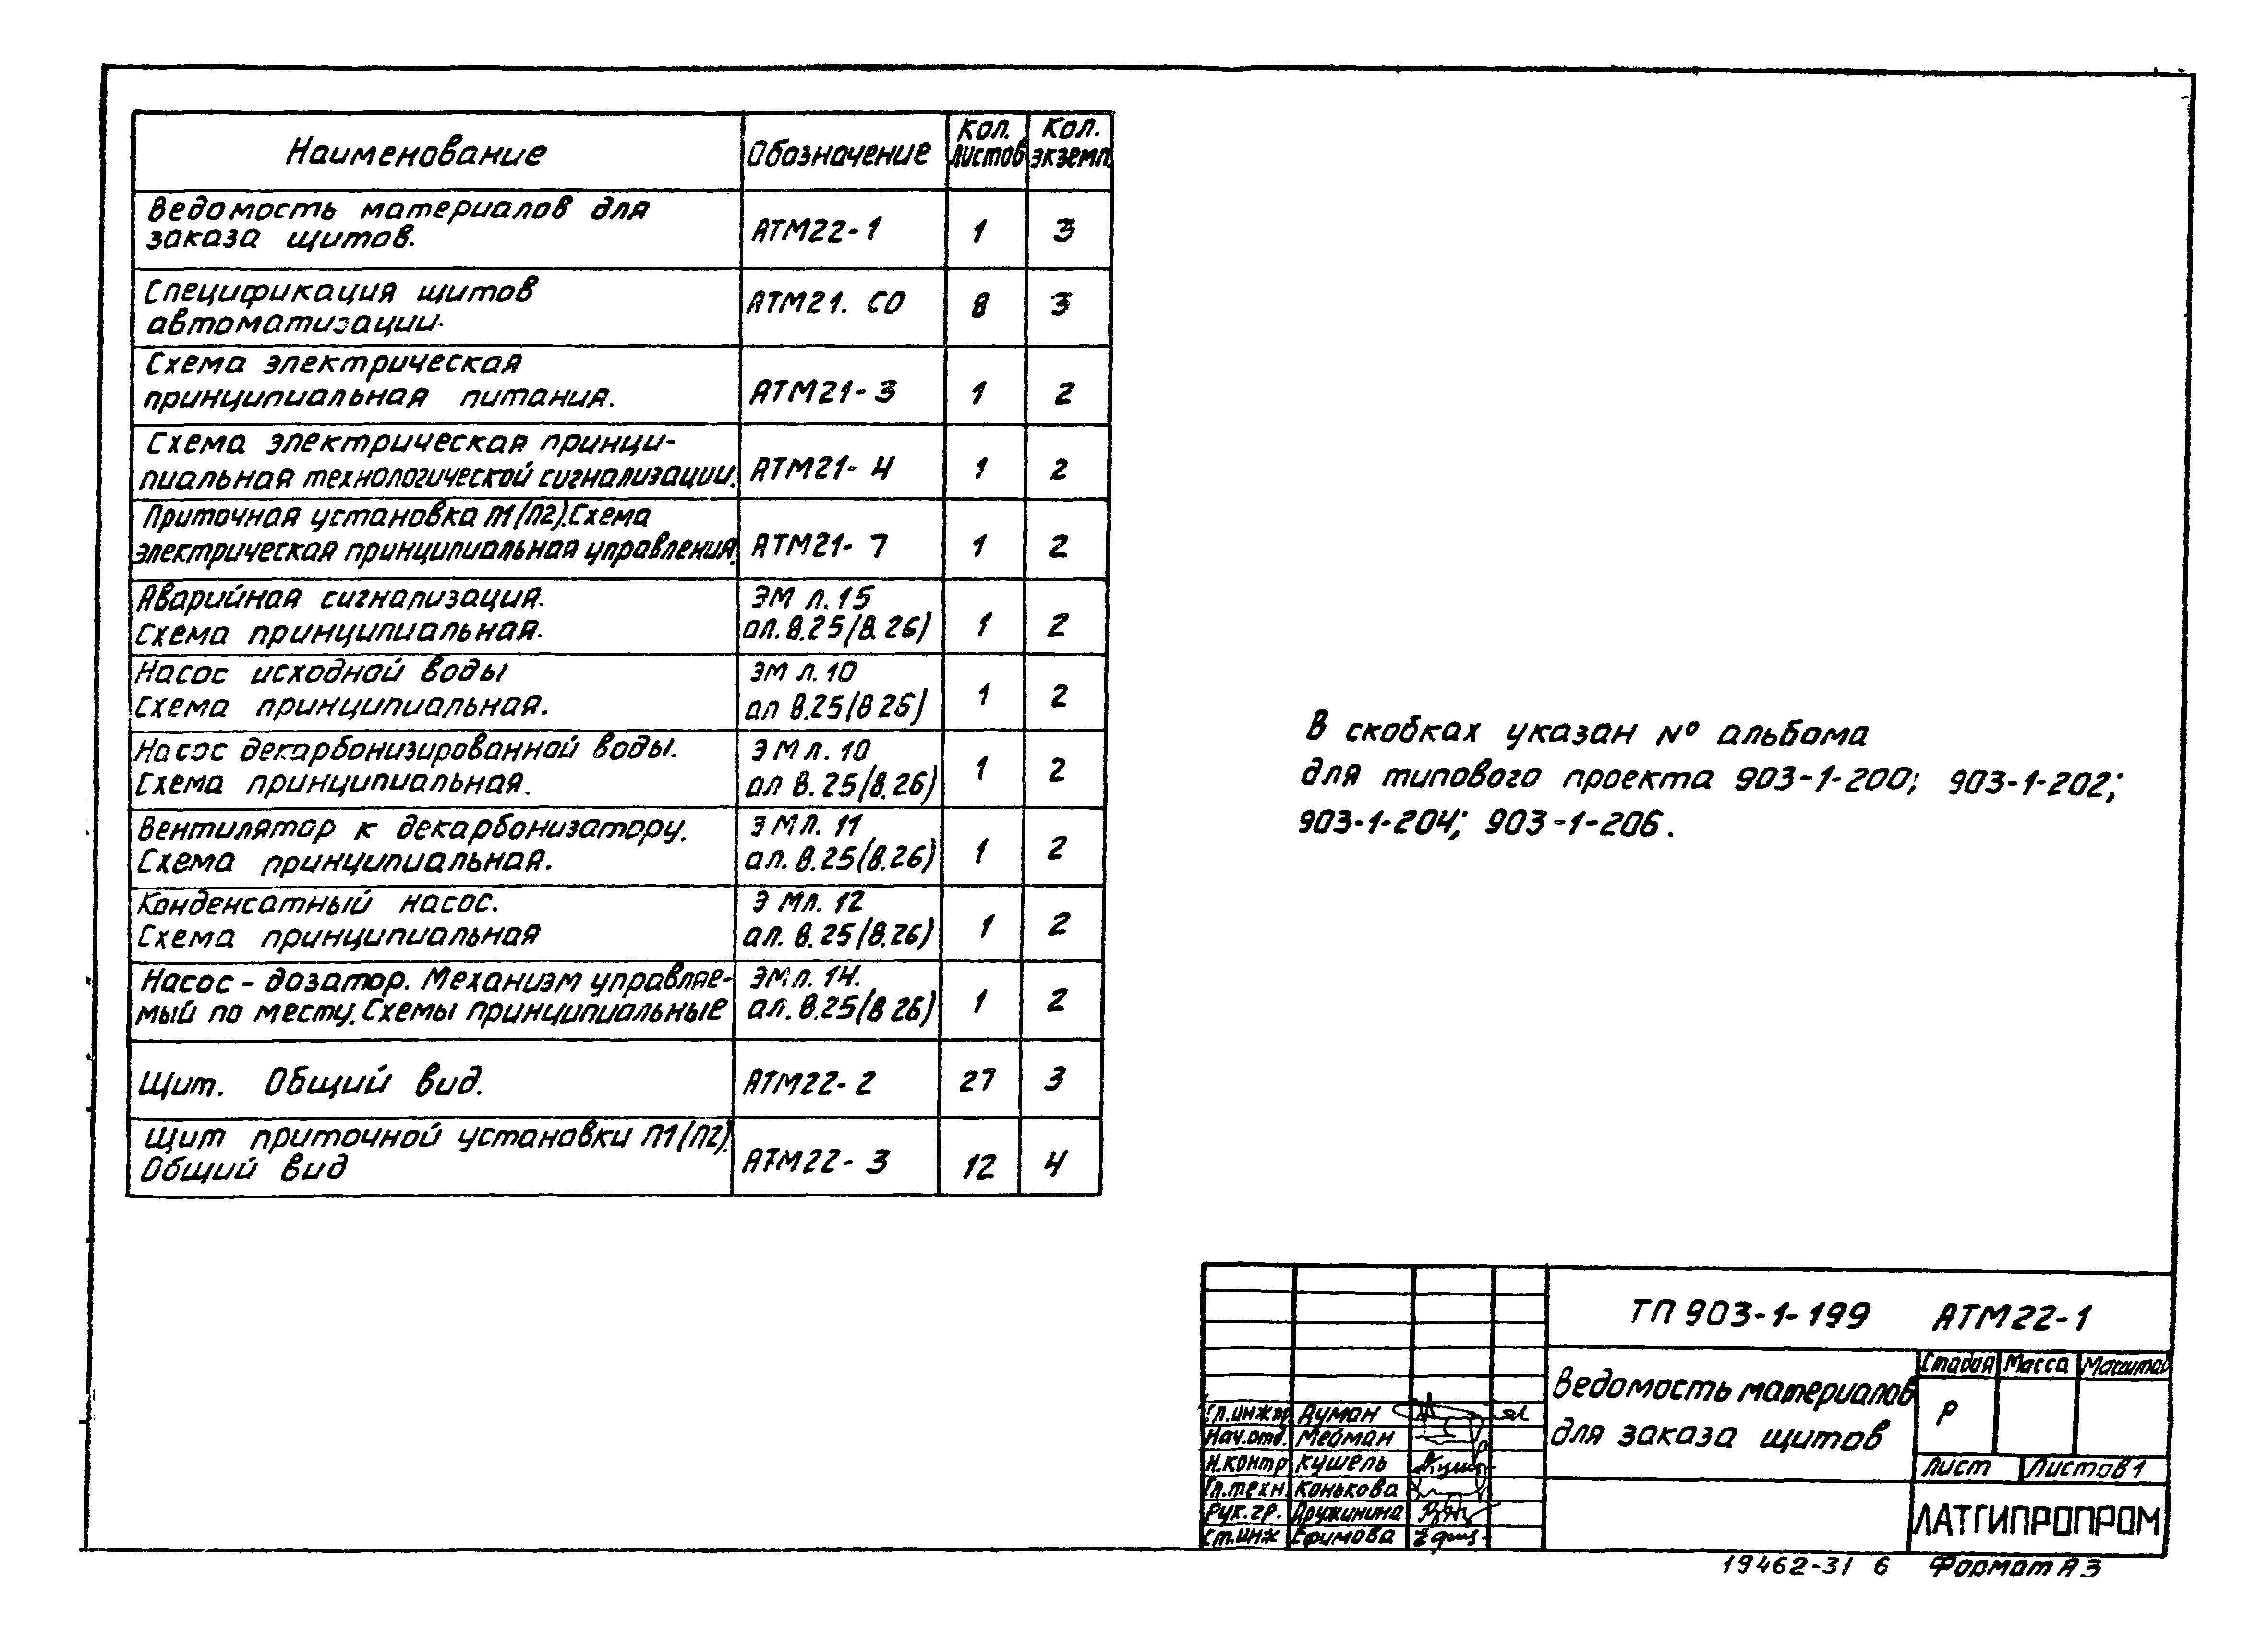 Наименование
Обозначение
Кол. листов
Кол. экземп.
Ведомость материалов для
заказа щитов.
АТМ22-1
1
3
Спецификация щитов
автоматизации.
АТМ21. СО
8
3
Схема электрическая
принципиальная питания.
АТМ21-3
1
2
Схема электрическая принци-
пиальная технологической сигнализации.
АТМ21-4
1
2
Приточная установка П1(П2).Схема
электрическая принципиальная управления.
АТМ21-7
1
2
Аварийная сигнализация.
Схема принципиальная.
ЭМ л.15
ал.8.25(8.26)
1
2
Насос исходной воды
Схема принципиальная.
ЭМ л.10
ал 8.25(8 26)
1
2
Насос декарбонизированной воды.
Схема принципиальная.
ЭМ л.10
ал 8.25(8.26)
1
2
Вентилятор к декарбонизатору.
Схема принципиальная.
ЭМ л. 11
ал. 8.25(8.26)
1
2
Конденсатный насос.
Схема принципиальная
ЭМ л. 12
ал. 8.25(8.26)
1
2
Насос - дозатор. Механизм управляе-
мый по месту. Схемы принципиальные
ЭМ л. 14.
ал. 8.25(8 26)
1
2
Щит. Общий вид.
АТМ22-2
27
3
Щит приточной установки П1(П2).
Общий вид
АТМ22-3
12
4
В скобках указан № альбома
для типового проекта 903-1-200; 903-1-202;
903-1-204; 903-1-206.
ТП 903-1-199 АТМ22-1
Ведомость материалов
для заказа щитов
Стадия Масса Масштаб
Р
Лист Листов 1
ЛАТГИПРОПРОМ
Гл.инж.пр Думан
Нач.отд. Мебман
Н.контр Кушель
Гл.техн. Конькова
Рук.гр. Дружинина
Ст.инж Ефимова
19462-31 6 Формат А3